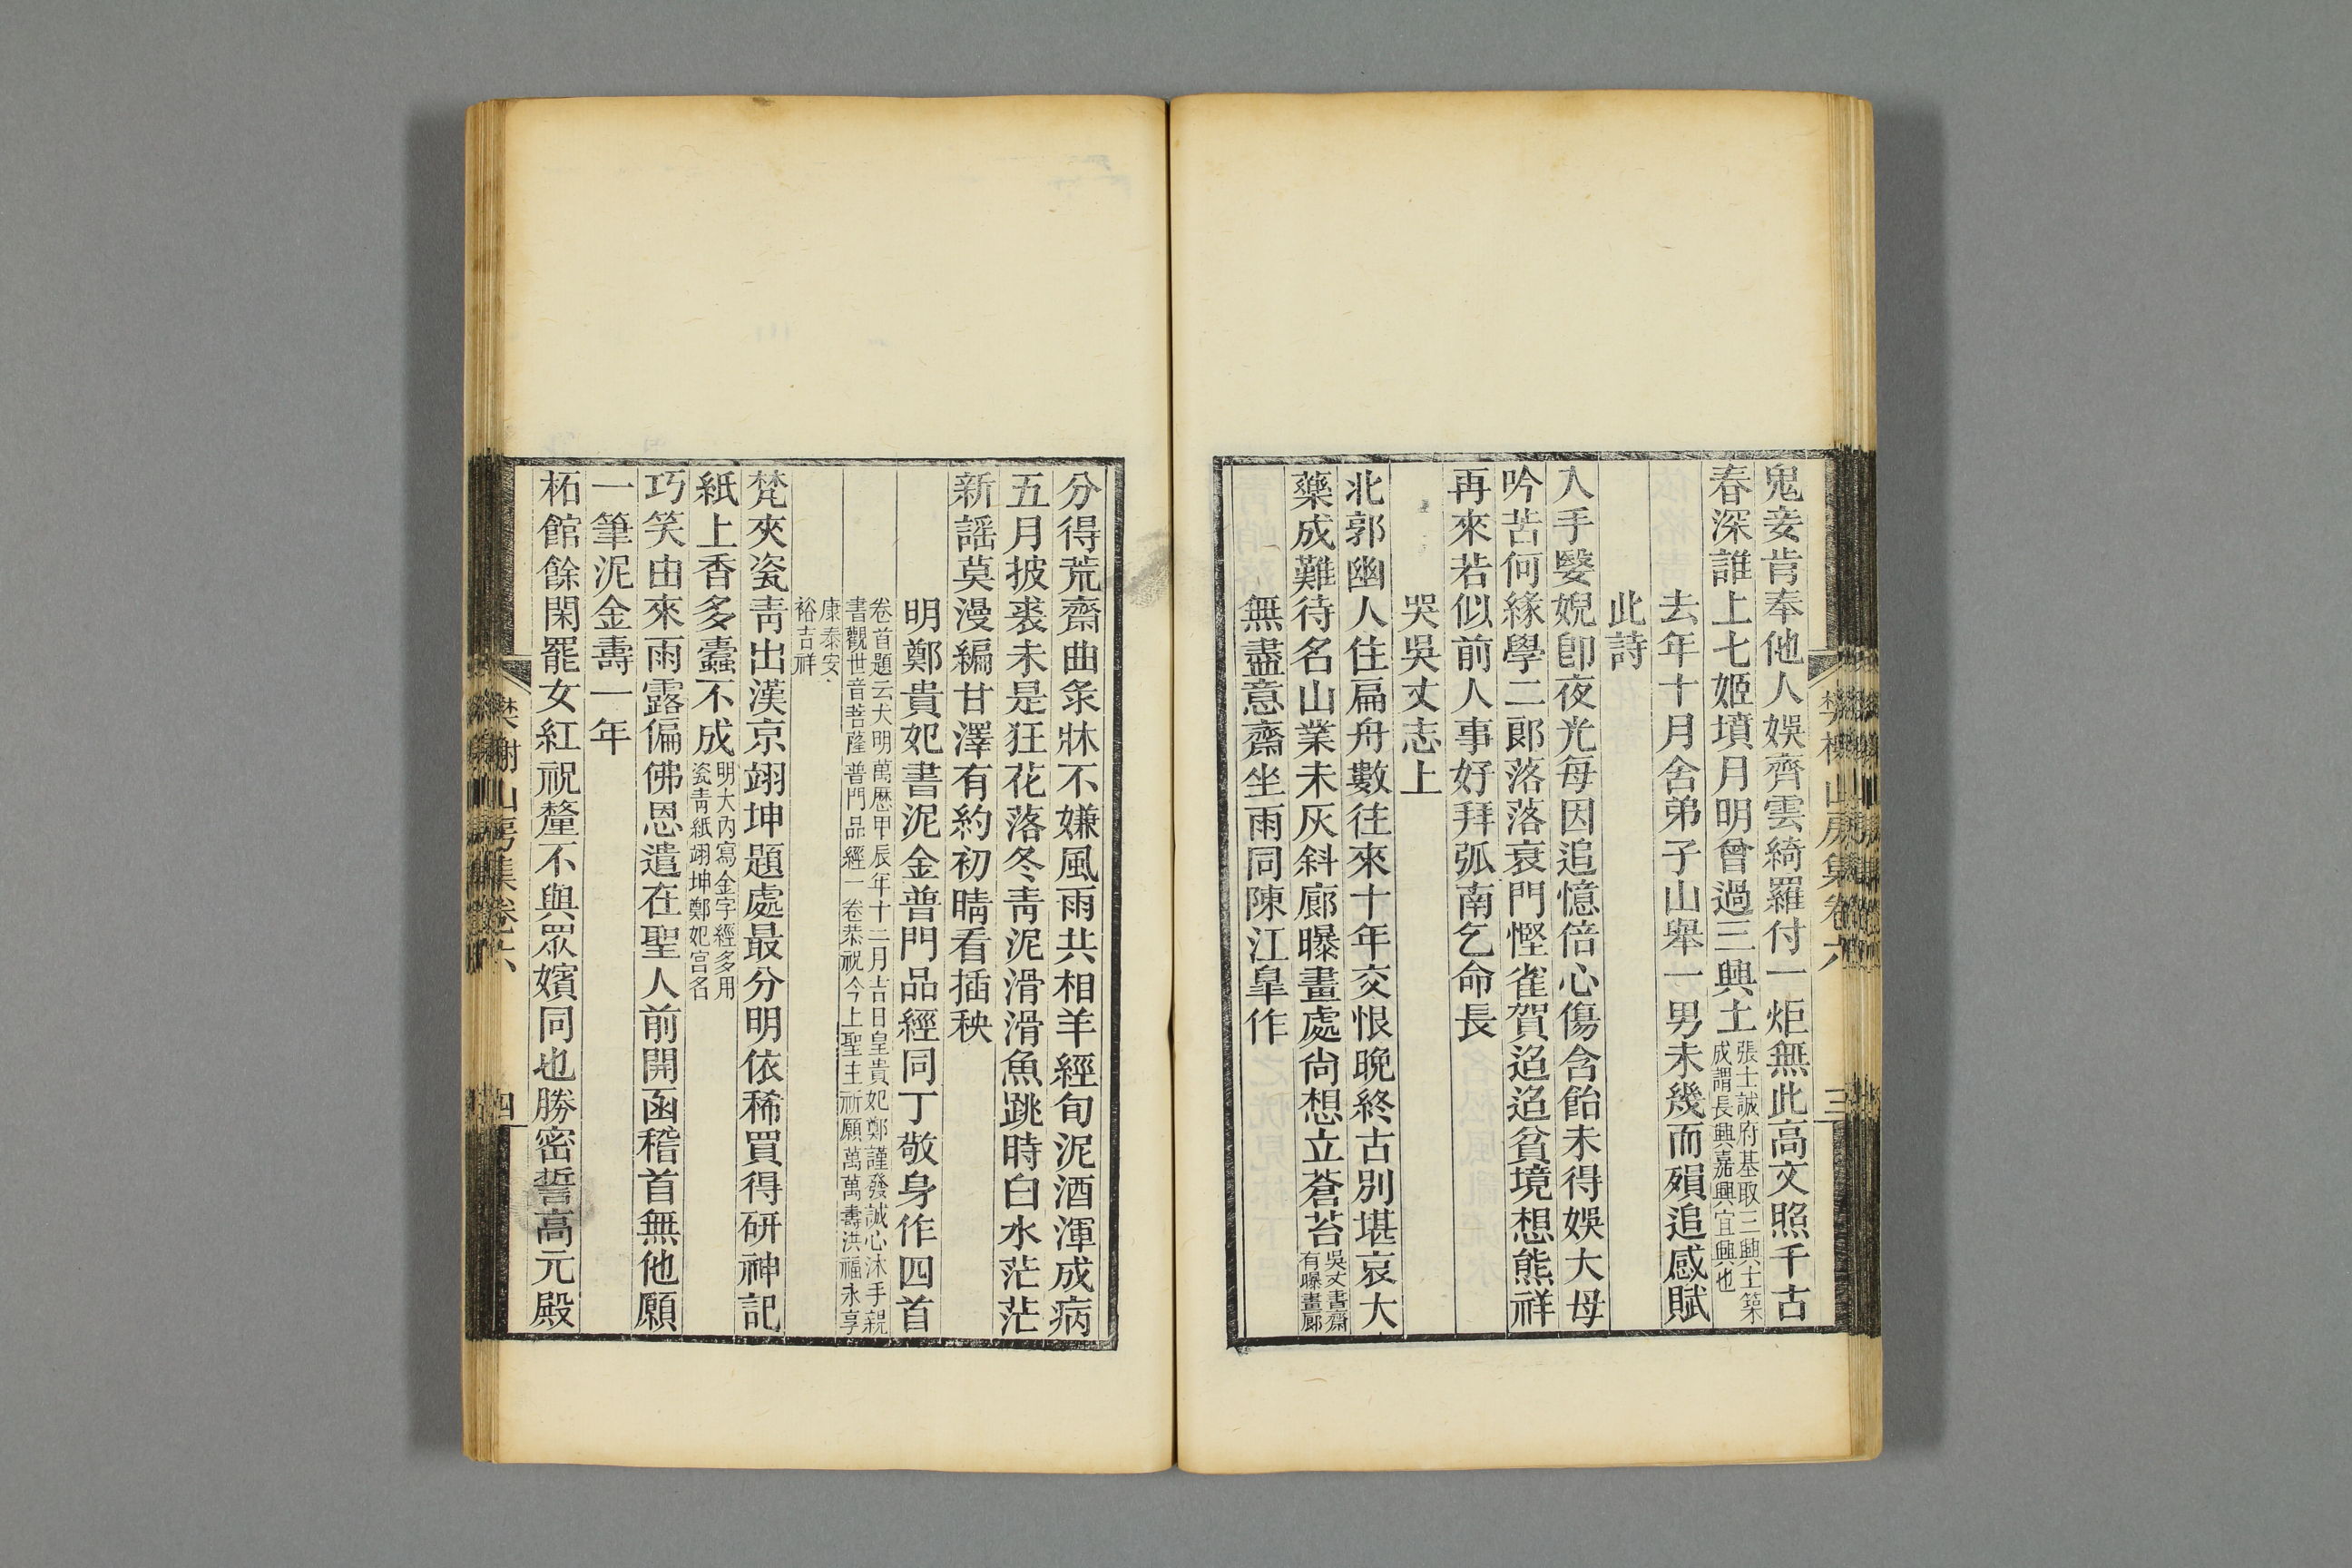 鬼妾肯奉他人娛齊雲綺羅付一炬無此高文照千古
春深誰上七姬墳月明曾過三興土張士誠府基取三興土築成謂長興嘉興宜興也
去年十月舍弟子山舉一男未幾而殞追感賦
此詩
入手嫛婗卽夜光每因追憶倍心傷含飴未得娛大母
吟苦何緣學二郞落落衰門慳雀賀迢迢貧境想熊祥
再來若似前人事好拜弧南乞命長
哭吳丈志上
北郭幽人住扁舟數往來十年交恨晚終古別堪哀大
藥成難待名山業未灰斜廊曝畫處尙想立蒼苔吳丈書齋有曝畫廊
無盡意齋坐雨同陳江臯作
樊榭山房集卷六
三
分得荒齋曲彔牀不嫌風雨共相羊經旬泥酒渾成病
五月披裘未是狂花落冬靑泥滑滑魚跳時白水茫茫
新謡莫漫編甘澤有約初晴看插秧
明鄭貴妃書泥金普門品經同丁敬身作四首
卷首題云大明萬歷甲辰年十二月吉日皇貴妃鄭謹發誠心沐手親
書觀世音菩薩普門品經一卷恭祝今上聖主祈願萬萬壽洪福永享
康泰安
裕吉祥
梵夾瓷靑出漢京翊坤題處最分明依稀買得硏神記
紙上香多蠹不成明大內寫金字經多用瓷靑紙翊坤鄭妃宮名
巧笑由來雨露偏佛恩遣在聖人前開函稽首無他願
一筆泥金壽一年
柘館餘閑罷女紅祝釐不與眾嬪同也勝密誓高元殿
樊榭山房集卷六
四